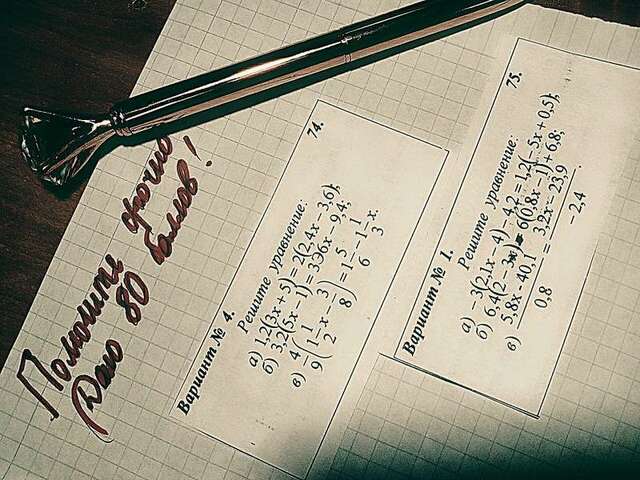 Помогите срочно
Даю 80 баллов!
74.
Вариант № 4.
Решите уравнение:
а) 1,2(3x + 5) = 2(2,4x − 3,6);
б) 3,2(5x − 1) = 3,36x − 9,4;
в) 4/9(1/2 x − 3/8) = 1 5/6 − 1 1/3 x.
75.
Вариант № 1.
Решите уравнение:
а) −3(2,1x − 4) − 4,2 = 1,2(−5x + 0,5);
б) 6,4(2 − 3x) = 6(0,8x − 1) + 6,8;
в) 5,8x − 40,1 / 0,8 = 3,2x − 23,9 / −2,4.